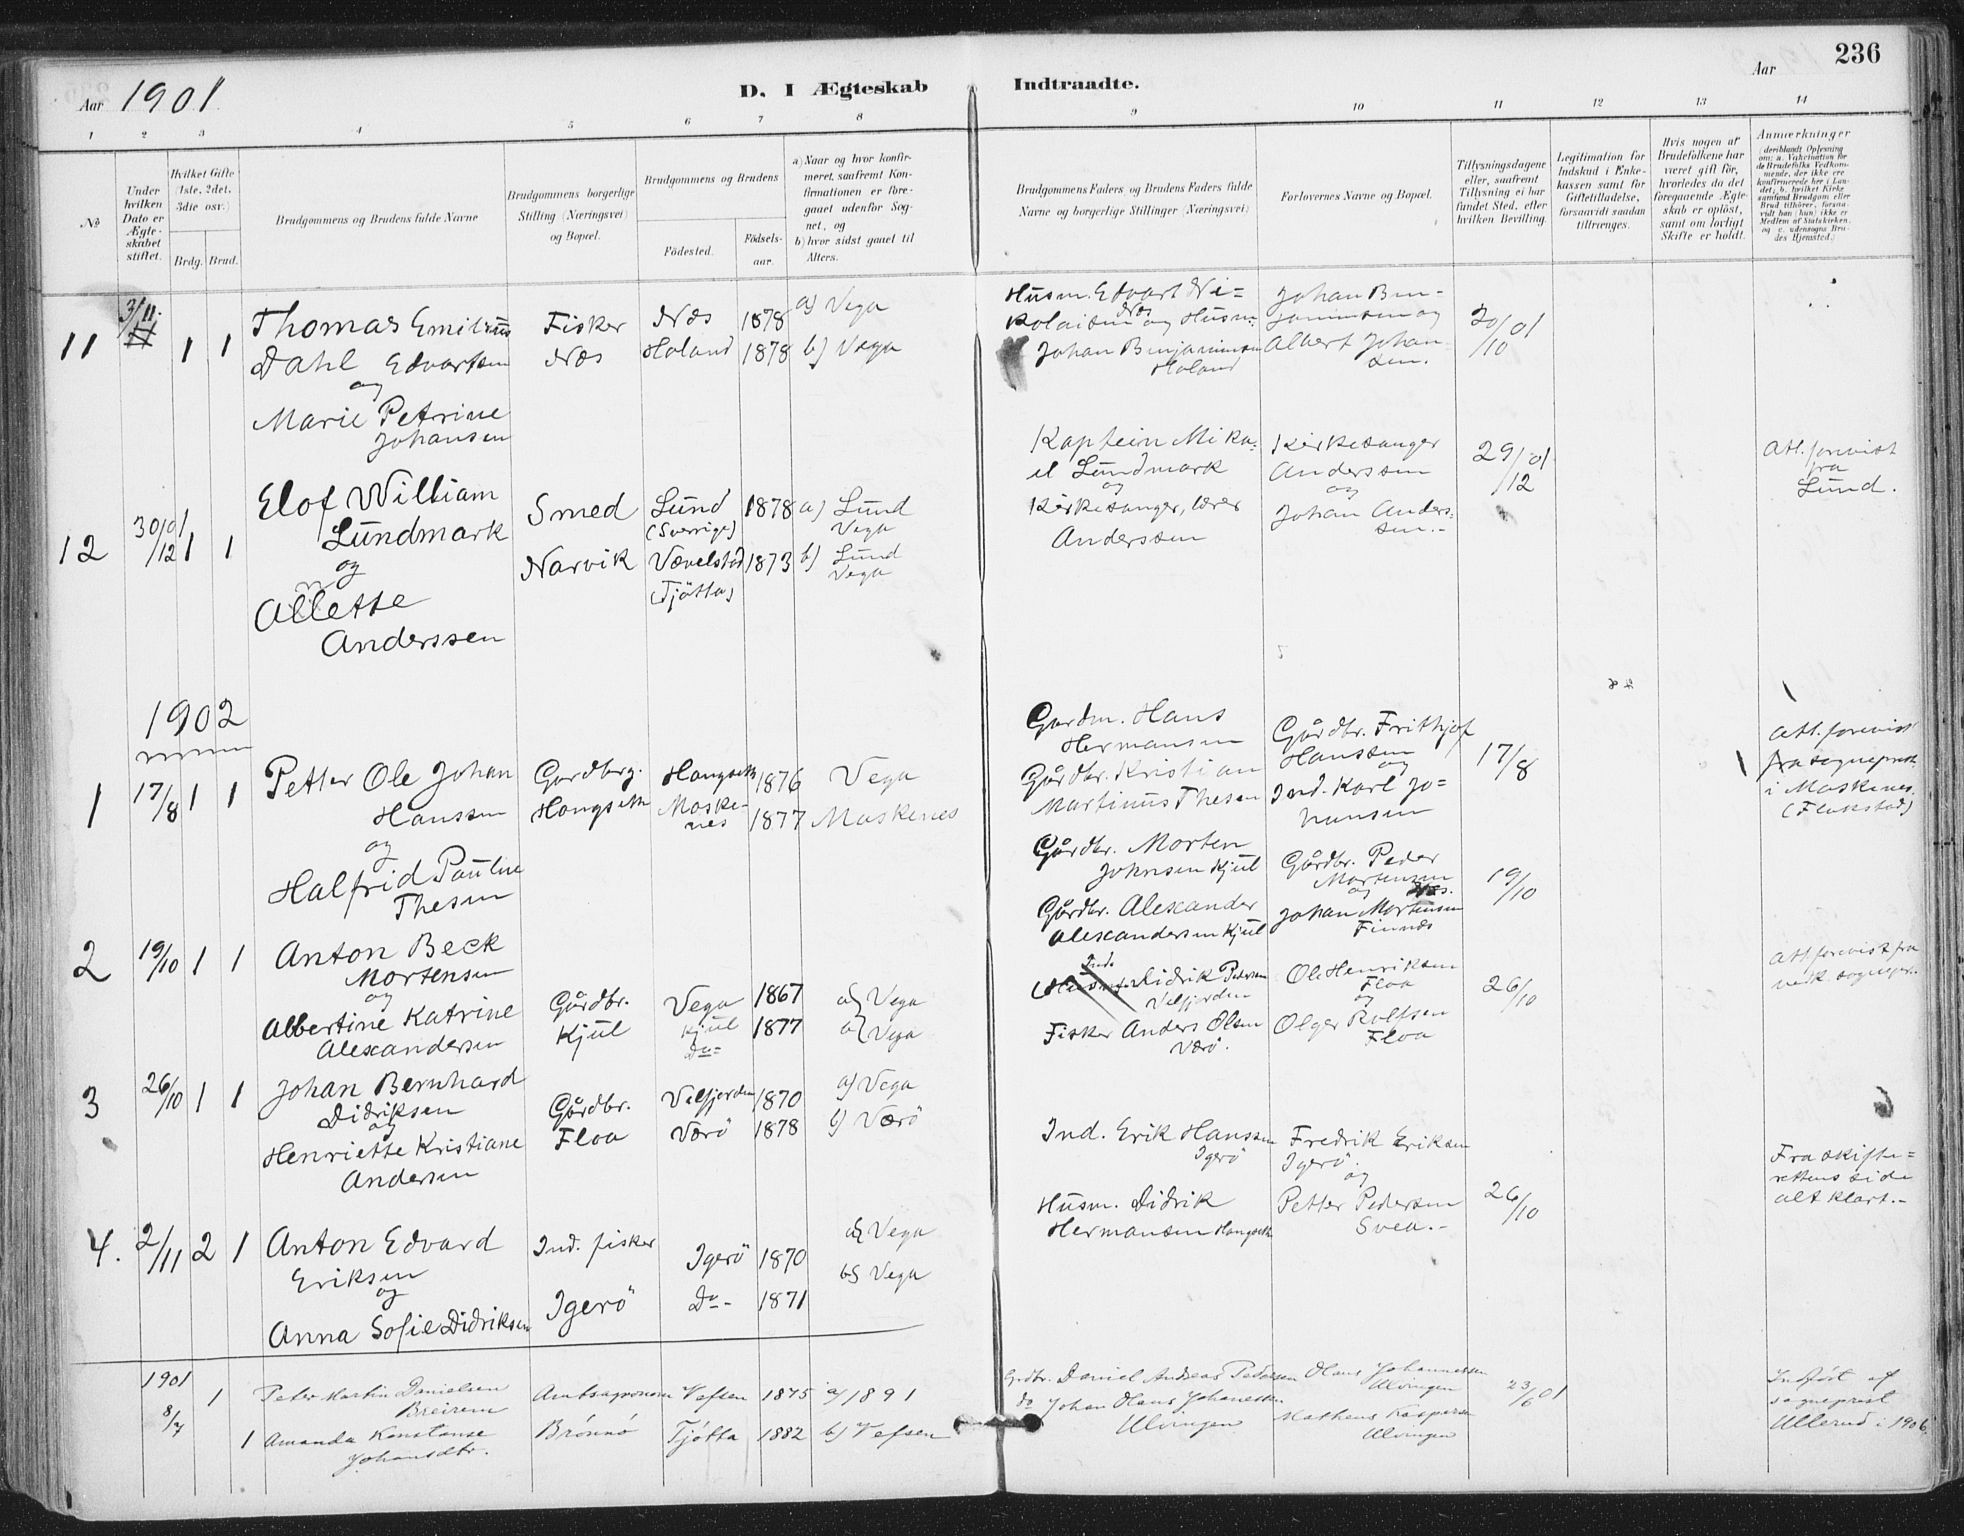 236
Aar 1901
D. I Ægteskab Indtraadte.
Aar
1 2 3 4 5 6 7 8 9 10 11 12 13 14
No
Under hvilken Dato er Ægteskabet stiftet.
Hvilket Gifte (1ste, 2det, 3die osv.)
Brdg. Brud.
Brudgommens og Brudens fulde Navne
Brudgommens borgerlige Stilling (Næringsvei) og Bopæl.
Brudgommens og Brudens
Födested.
Födselsaar.
a) Naar og hvor konfirmeret, saafremt Konfirmationen er foregaaet udenfor Sognet, og
b) hvor sidst gaaet til Alters.
Brudgommens Faders og Brudens Faders fulde Navne og borgerlige Stillinger (Næringsvei)
Forlovernes Navne og Bopæl.
Tillysningsdagene eller, saafremt Tillysning ei har fundet Sted, efter hvilken Bevilling.
Legitimation for Indskud i Enkekassen samt for Giftetilladelse, forsaavidt saadan tiltrænges.
Hvis nogen af Brudefolkene har været gift för, hvorledes da det foregaaende Ægteskab er oplöst, samt om lovligt Skifte er holdt.
Anmærkninger
(deriblandt Oplysning om: a. Vakcination for de Brudefolks Vedkommende, der ikke ere konfirmerede her i Landet; b. hvilket Kirkesamfund Brudgom eller Brud tilhörer, forsaavidt han (hun) ikke er Medlem af Statskirken, og c. udensogns Brudes Hjemsted.)
11 3/11. 1 1
Thomas Emilius
Dahl Edvartsen
og
Marie Petrine
Johansen
Fisker
Næs
Næs 1878 a) Vega
Holand 1878 b) Vega
Husm. Edvart Ni=
kolaisen Næs og Husm.
Johan Benjaminsen
Holand
Johan Ben-
jaminsen og
Albert Johan
sen.
20/10 01
12 30/12 01 1 1
Elof William
Lundmark
og
Allette
Anderssen
Smed
Narvik
Lund 1878 a) Lund
(Sverige) Vega
Vævelstad 1873 b) Lund
(Tjötta) Vega
Kaptein Mika-
el Lundmark
og
Kirkesanger, lærer
Anderssen
Kirkesanger
Anderssen
og
Johan Anders-
sen.-
29/12 01
Att. forevist
fra
Lund.
1902
1 17/8 1 1
Petter Ole Johan
Hanssen
og
Halfrid Pauline
Thesen
Gardbrg.
Hongseth
Hongseth 1876 Vega
Moske-
nes 1877 Moskenes
Gardm. Hans
Hermansen
Gårdbr. Kristian
Martinus Thesen
Gårdbr. Frithjof
Hanssen
og
Ind. Karl Jo=
hansen
17/8
Att. forevist
fra sogneprest
i Moskenes
(Flakstad)
2 19/10 1 1
Anton Beck
Mortensen
og
Albertine Katrine
Alexandersen
Gårdbr.
Kjul
Vega 1867 a) Vega
Kjul 1877 a) Vega
Do=
Gårdbr. Morten
Johnsen Kjul
Gårdbr. Alexander
Alexandersen Kjul
Gårdbr. Peder
Mortensen
og Næs.
Johan Mortensen
Finnes
19/10
3 26/10 1 1
Johan Bernhard
Didriksen
og
Henriette Kristiane
Andersen
Gårdbr.
Floa
Velfjorden 1870 a) Vega
Værö 1878 b) Værö
Ind. Didrik Pedersen
Velfjorden
Fisker Anders Olsen
Værö.
Ole Henriksen
Floa
og
Olger Rolfsen
Floa
26/10
Att. forevist fra
vedk. sognepr.
4. 2/11 2 1
Anton Edvard
Eriksen
og
Anna Sofie Didriksen
Ind. fisker
Igerö
Igerö 1870 a) Vega
Do- 1871 b) Vega
Ind. Erik Hanssen
Igerö
Husm. Didrik
Hermansen Hongseth
Fredrik Eriksen
Igerö
og
Petter Pedersen
Svea.-
26/10
Fra skifte=
rettens side
alt klart.-
1901
8/7 1
Peter Martin Danielsen
Breirem
1 Amanda Konstanse
Johansdtr.
Brönnö
Vefsen 1875 a) 1891
Tjötta 1882 b) Vefsen
Grdbr. Daniel Andreas Pedersen
do Johan Olaus Johannesen
Ulvingen
Olaus Johannessen
Ulvingen
Matheus Kaspersen
Ulvingen
23/6 01
Indført af
sogneprest
Ullerud i 1906